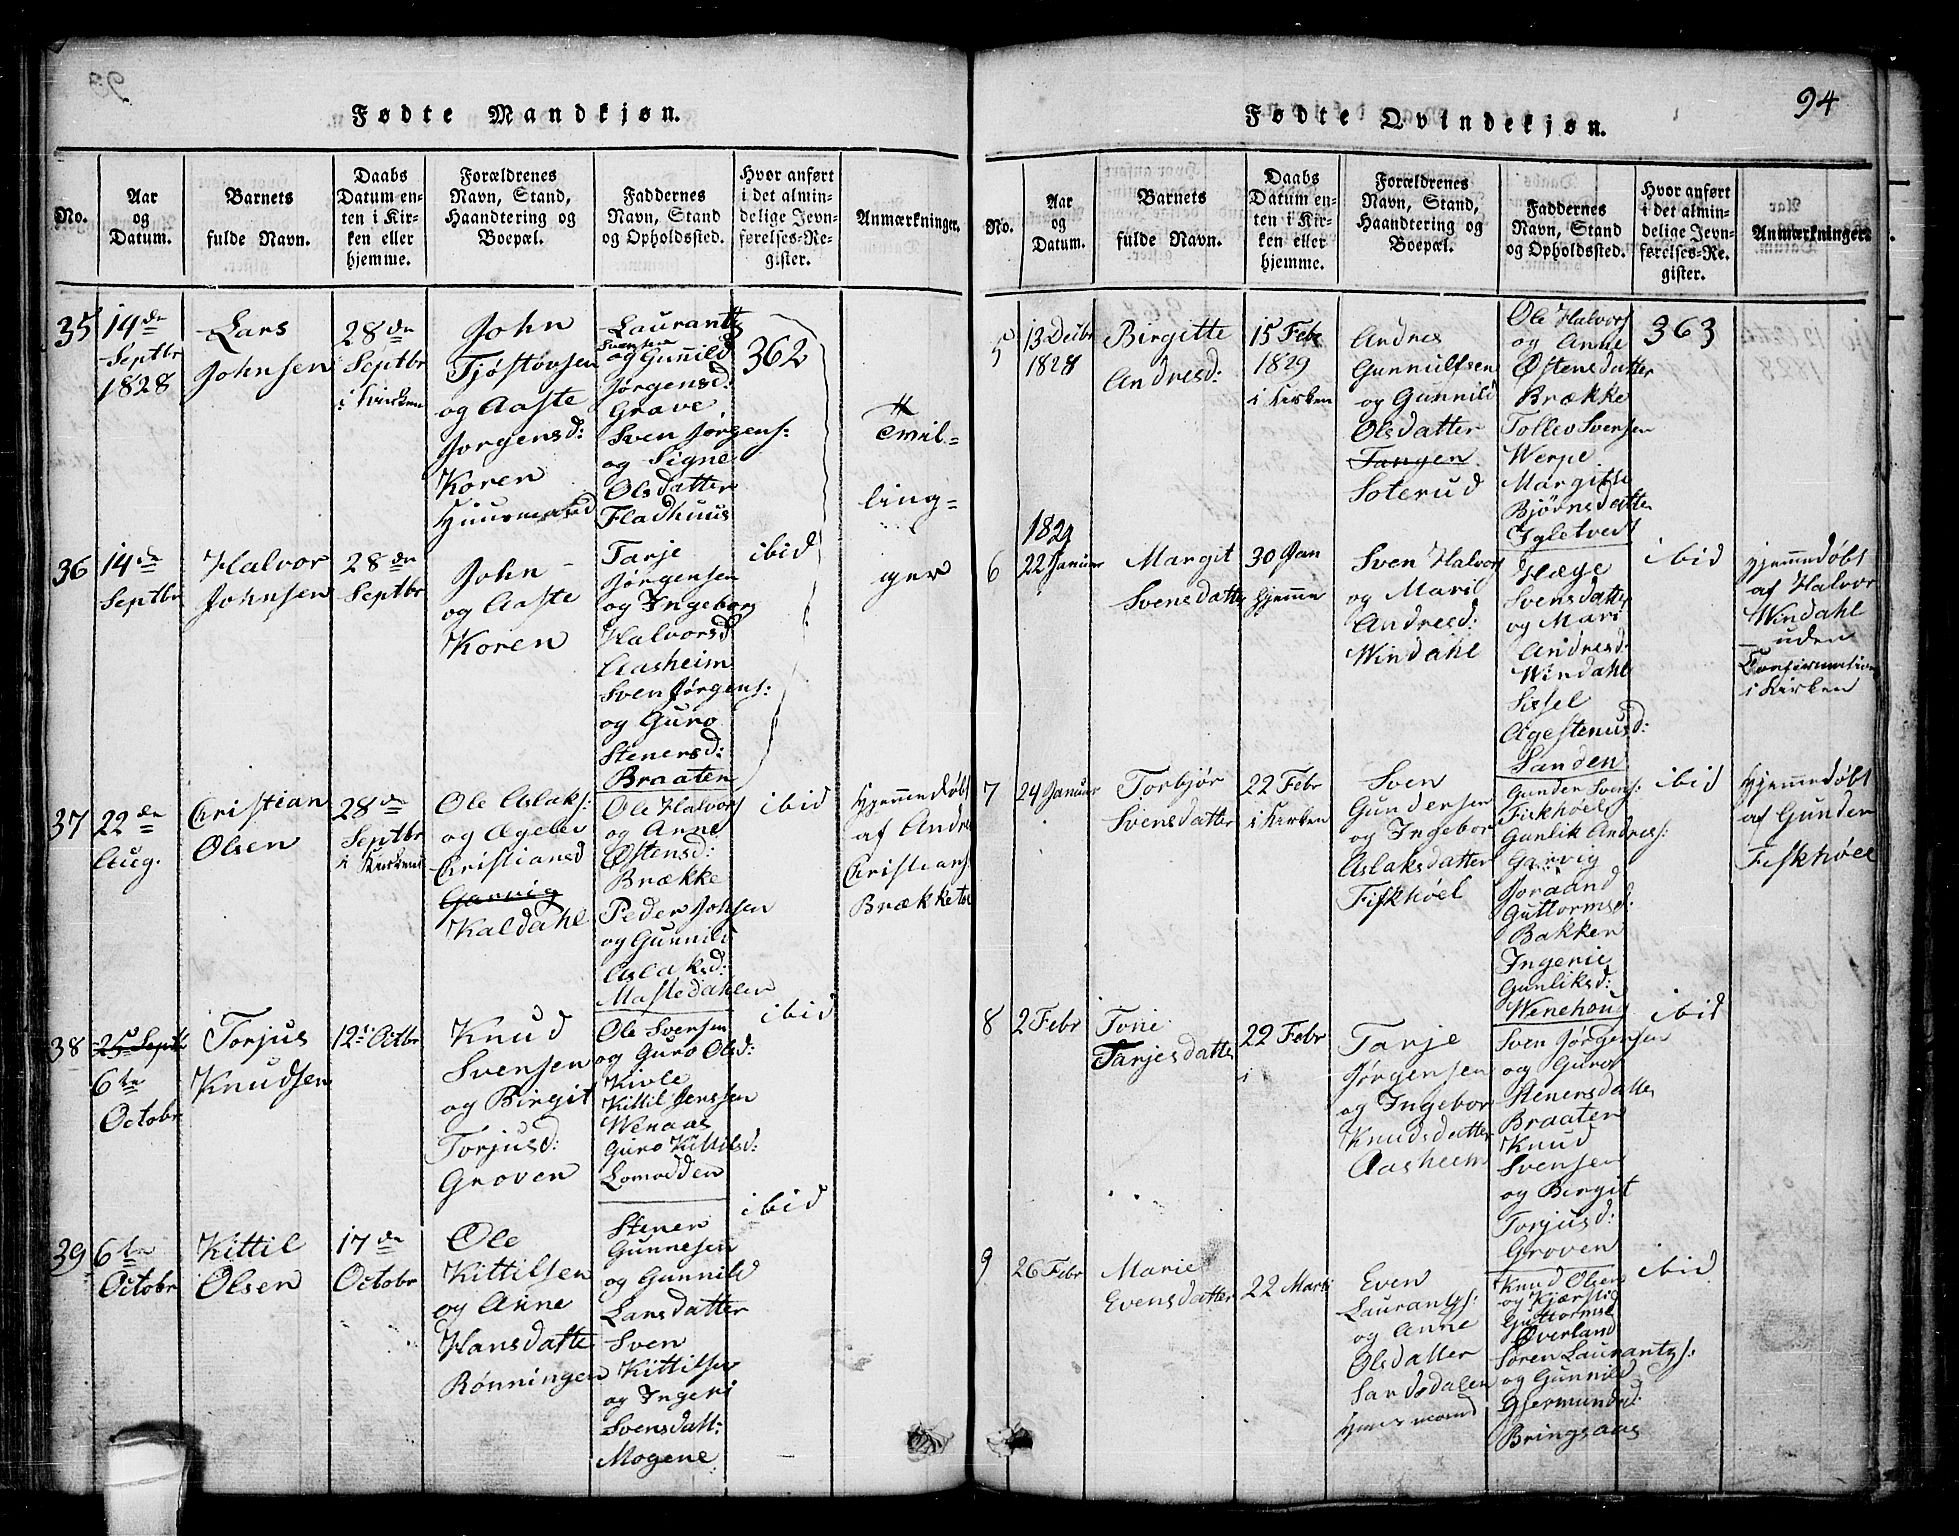 Fødte Mandkjøn.
No.
Aar
og
Datum.
Barnets
fulde Navn.
Daabs
Datum en-
ten i Kir-
ken eller
hjemme.
Forældrenes
Navn, Stand,
Haandtering og
Boepæl.
Faddernes
Navn, Stand
og Opholdssted.
Hvor anført
i det almin-
delige Jevn-
førelses-Re-
gister.
Anmærkninger.
35
14de
Septbr
1828
Lars
Johnsen
28de
Septbr
i Kirken
John
Tjøstovsen
og Aaste
Jorgensd:
Koren
Huusmand
Laurants
Svensen
og Gunild
Jørgensd:
Grave.
Sven Jørgens:
og Signe
Olsdatter
Fladhuus
362
Tvil-
ling-
ger
36
14de
Septbr
Halvor
Johnsen
28de
Septbr
John
og Aaste
Koren
Tarje
Jørgensen
og Ingeborg
Halvorsd
Aasheim
Sven Jørgens:
og Guro
Stenersd:
Braaten
ibid
37
22de
Aug.
Christian
Olsen
28de
Septbr
i Kirken
Ole Aslaks:
og Ægelev
Christiansd
Garvig
Kaldahl
Ole Halvors
og Anne
Østensd:
Brække
Peder Johsen
og Gunnild
Aslaksd:
Mastedahlen
ibid
Hjemmedøbt
af Andre
Christians
Brækketo
38
25 Septbr
6te
Octobr
Torjus
Knudsen
12te Octbr
Knud
Svensen
og Birgit
Torjusd:
Groven
Ole Svensen
og Guro Olsd:
Kivle
Kittil Jenssen
Wenaas
Guro Kittilsd:
Lomodden
ibid
39
6te
Octobr
Kittil
Olsen
17de
Octobr
Ole
Kittilsen
og Anne
Hansdatte
Rønningen
Stener
Gunnesen
og Gunnild
Larsdatter
Sven
Kittilsen
og Ingeri
Svensdatt:
Mogene
ibid
94
Fødte Qvindekjøn.
No.
Aar
og
Datum.
Barnets
fulde Navn.
Daabs
Datum en-
ten i Kir-
ken eller
hjemme.
Forældrenes
Navn, Stand,
Haandtering og
Boepæl.
Faddernes
Navn, Stand
og Opholdssted.
Hvor anført
i det almin-
delige Jevn-
førelses-Re-
gister.
Anmærkninger.
5
13 Decbr
1828
Birgitte
Andresd:
15 Feb
1829
i Kirken
Andres
Gunnulfsen
og Gunnild
Olsdatter
Tangen
Soterud
Ole Halvors
og Anne
Østensdatter
Brække
Tollev Svensen
Werpe
Margitte
Bjørnsdatte
Igletved
363
1829
6
22 Januar
Margit
Svensdatte
30 Jan
hjemme
Sven Halvors
og Mari
Andresd:
Windahl
Hæge
Svensdatte
og Mari
Andresd:
Windahl
Sissel
Agestenusd:
Sanden
ibid
hjemmedøbt
af Halvor
Windahl
uden
Confirmation
i Kirken
7
24 Januar
Torbjør
Svensdatter
22 Febr
i Kirken
Sven
Gundersen
og Ingebor
Aslaksdatter
Fiskhøel
Gunder Svens:
Fiskhoel
Gunlik Andres:
Garvig
Joraand
Guttormsd:
Bakken
Ingerie
Gunliksd:
Wenehoug
ibid
Hjemmedøbt
af Gunder
Fiskhøel
8
2 Febr
Tone
Tarjesdatte
22 Febr
i
Tarje
Jørgensen
og Ingebor
Knudsdatter
Aasheim
Sven Jørgensen
og Guro
Stenersdatte
Braaten
Knud
Svensen
og Birgit
Torjusd:
Groven
ibid
9
26 Febr
Marie
Evensdatter
22 Marts
Even
Laurants:
og Anne
Olsdatter
Sandsdalen
Huusmand
Knud Olsen
og Kjærsti
Guttormsd
Øverland
Søren Laurants:
og Gunnild
Gjermundsd:
Bringsaas
ibid